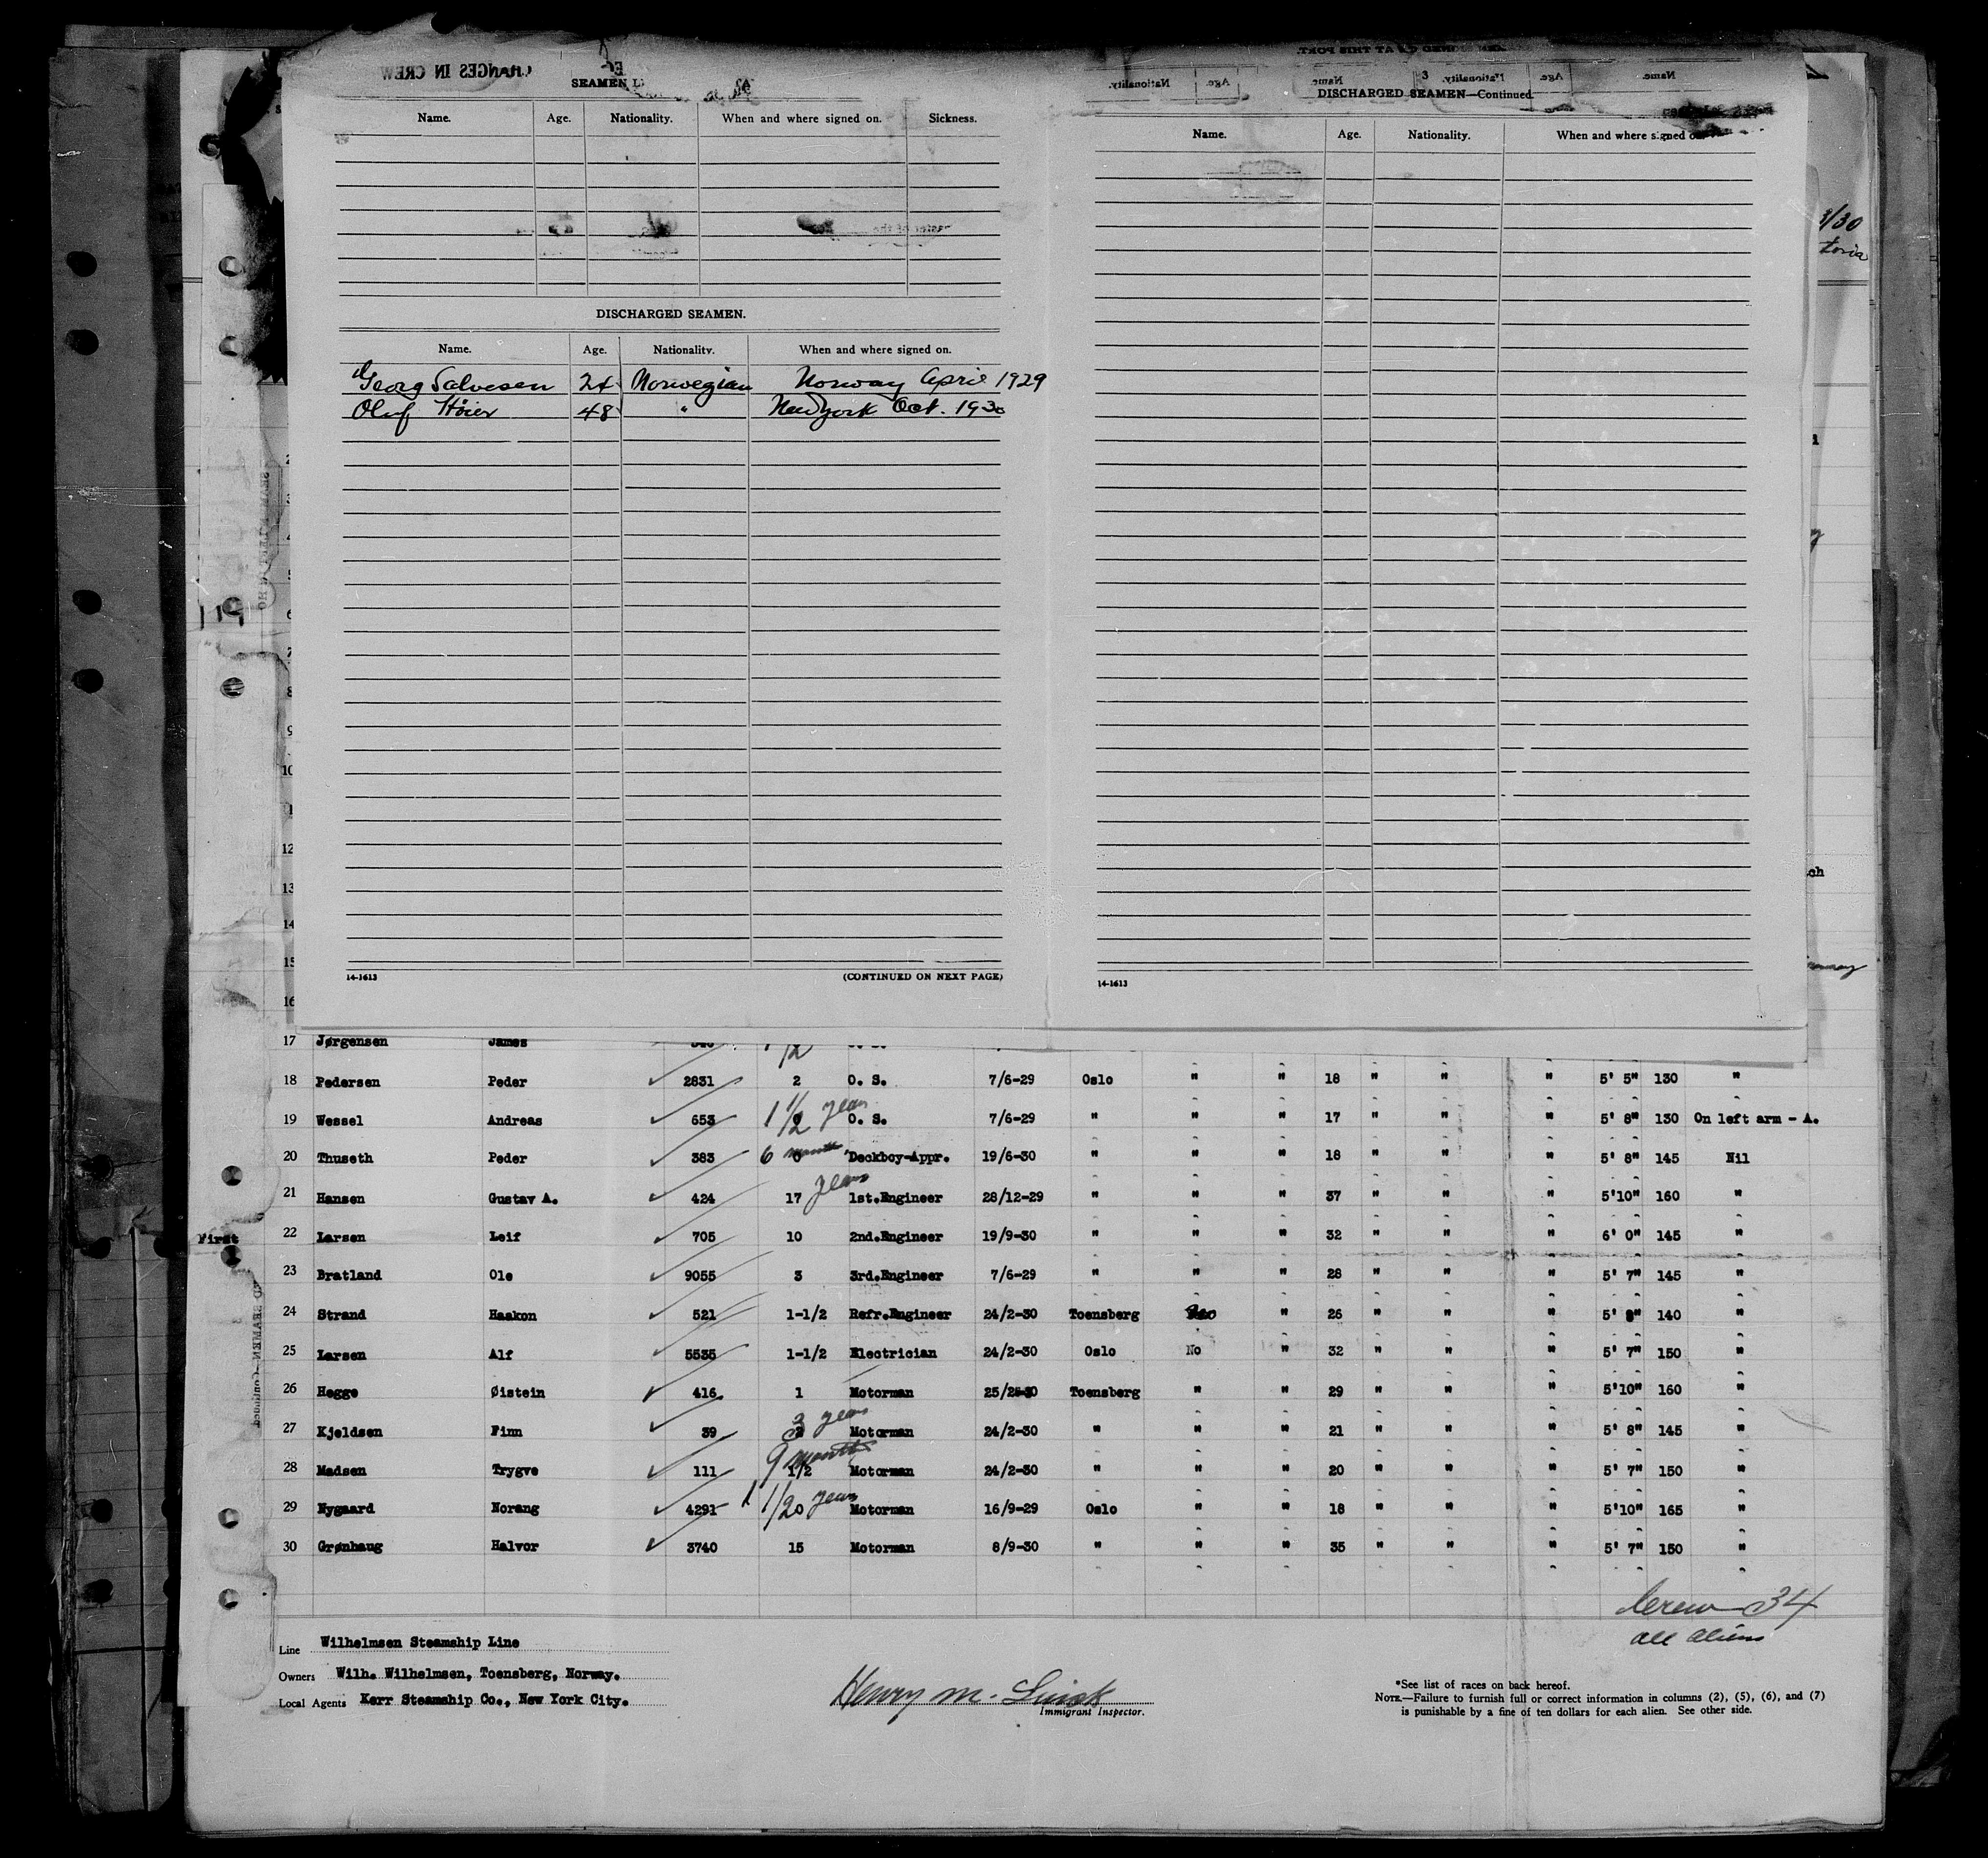 CHANGES IN CREW
SEAMEN
Name. Age. Nationality. When and where signed on. Sickness.
DISCHARGED SEAMEN.
Name. Age. Nationality. When and where signed on.
Georg Salvesen 24 Norwegian Norway April 1929
Oluf Höier 48 " New York Oct. 1930
14-1613 (CONTINUED ON NEXT PAGE)
AT THIS PORT.
Name. Age. Nationality. Name Age. Nationality.
3
DISCHARGED SEAMEN—Continued.
Name. Age. Nationality. When and where signed on
14-1613
3/30
119
6
8
10
12
13
14
15
16
17 Jørgensen James 1/2
18 Pedersen Peder 2831 2 O. S. 7/6-29 Oslo " " 18 " " " 5' 5" 130 "
19 Wessel Andreas 653 1 1/2 years O. S. 7/6-29 " " " 17 " " " 5' 8" 130 On left arm - A.
20 Thuseth Peder 383 6 months 0 Deckboy-Appr. 19/6-30 " " " 18 " " " 5' 8" 145 Nil
21 Hansen Gustav A. 424 17 years 1st.Engineer 28/12-29 " " " 37 " " " 5'10" 160 "
First 22 Larsen Leif 705 10 2nd.Engineer 19/9-30 " " " 32 " " " 6' 0" 145 "
23 Bratland Ole 9055 3 3rd.Engineer 7/6-29 " " " 28 " " " 5' 7" 145 "
24 Strand Haakon 521 1-1/2 Refr.Engineer 24/2-30 Toensberg " 26 " " " 5' 8" 140 "
25 Larsen Alf 5535 1-1/2 Electrician 24/2-30 Oslo No " 32 " " " 5' 7" 150 "
26 Hegge Øistein 416 1 Motorman 25/25-30 Toensberg " " 29 " " " 5'10" 160 "
27 Kjeldsen Finn 39 3 years Motorman 24/2-30 " " " 21 " " " 5' 8" 145 "
28 Madsen Trygve 111 9 months 1/2 Motorman 24/2-30 " " " 20 " " " 5' 7" 150 "
29 Nygaard Norang 4291 1 1/2 years 0 Motorman 16/9-29 Oslo " " 18 " " " 5'10" 165 "
30 Grønhaug Halvor 3740 15 Motorman 8/9-30 " " " 35 " " " 5' 7" 150 "
Crew 34
all aliens
Line Wilhelmsen Steamship Line
Owners Wilh. Wilhelmsen, Toensberg, Norway.
Local Agents Kerr Steamship Co., New York City.
Henry M.
Immigrant Inspector.
*See list of races on back hereof.
NOTE.—Failure to furnish full or correct information in columns (2), (5), (6), and (7)
is punishable by a fine of ten dollars for each alien. See other side.